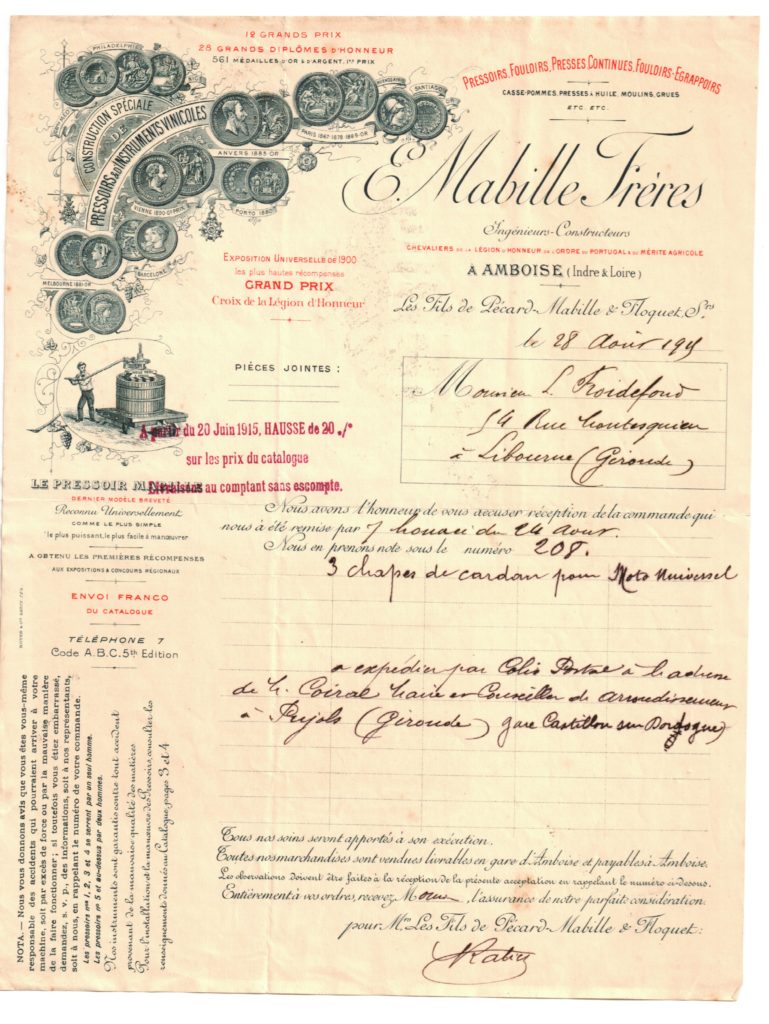 12 GRANDS PRIX
28 GRANDS DIPLÔMES D'HONNEUR
561 MÉDAILLES D'OR & D'ARGENT, 1ers PRIX
PHILADELPHIE
CONSTRUCTION SPÉCIALE
DE
PRESSOIRS & D'INSTRUMENTS VINICOLES
SANTIAGO
PARIS 1867-1878-1889-OR
ANVERS 1885 OR
PORTO 1880
BARCELONE
MELBOURNE 1881-OR
PRESSOIRS, FOULOIRS, PRESSES CONTINUES, FOULOIRS-EGRAPPOIRS
CASSE-POMMES, PRESSES À HUILE, MOULINS, GRUES
ETC. ETC.
E. Mabille Frères
Ingénieurs-Constructeurs
CHEVALIERS DE LA LÉGION D'HONNEUR DE L'ORDRE DU PORTUGAL & DU MÉRITE AGRICOLE
À AMBOISE (Indre & Loire)
EXPOSITION UNIVERSELLE DE 1900
les plus hautes récompenses
GRAND PRIX
Croix de la Légion d'Honneur
Les Fils de Pécard-Mabille & Floquet, Srs
le 28 Août 1915
PIÈCES JOINTES :
Monsieur L. Froidefond
54 Rue Montesquieu
à Libourne (Gironde)
A partir du 20 Juin 1915, HAUSSE de 20 %
sur les prix du catalogue
Livraisons au comptant sans escompte.
LE PRESSOIR MABILLE
DERNIER MODÈLE BREVETÉ
Reconnu Universellement
COMME LE PLUS SIMPLE
le plus puissant, le plus facile à manœuvrer
A OBTENU LES PREMIÈRES RÉCOMPENSES
AUX EXPOSITIONS & CONCOURS RÉGIONAUX
ENVOI FRANCO
DU CATALOGUE
TÉLÉPHONE 7
Code A.B.C. 5th Edition
Nous avons l'honneur de vous accuser réception de la commande qui
nous a été remise par du 24 aout.
Nous en prenons note sous le numéro 208.
3 chapes de cardan pour Moto Universel
a expédier par Colis Postal à l'adresse
de M. Coiral Maire et Conseiller de arrondissement
à Pujols (Gironde) gare Castillon sur Dordogne)
Tous nos soins seront apportés à son exécution.
Toutes nos marchandises sont vendues livrables en gare d'Amboise et payables à Amboise.
Les observations doivent être faites à la réception de la présente acceptation en rappelant le numéro ci-dessus.
Entièrement à vos ordres, recevez M, l'assurance de notre parfaite considération.
pour Mrs Les Fils de Pécard-Mabille & Floquet:
NOTA. — Nous vous donnons avis que vous êtes vous-même
responsable des accidents qui pourraient arriver à votre
machine, soit par excès de force ou par la mauvaise manière
de la faire fonctionner ; si toutefois vous étiez embarrassé,
demandez, s. v. p., des informations, soit à nos représentants,
soit à nous, en rappelant le numéro de votre commande.
Les pressoirs nos 1, 2, 3 et 4 se serrent par un seul homme.
Les pressoirs no 5 et au-dessus par deux hommes.
Nos instruments sont garantis contre tout accident
provenant de la mauvaise qualité des matières
Pour l'installation et la manœuvre des Pressoirs, consulter les
renseignements donnés au Catalogue, pages 3 et 4